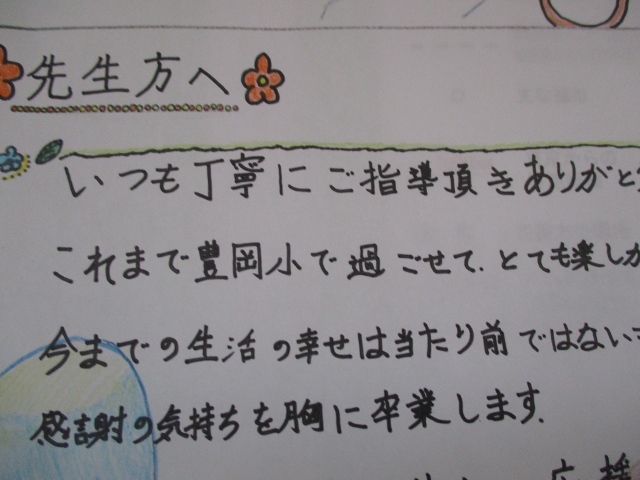 先生方へ
いつも丁寧にご指導頂きありがと
これまで豊岡小で過ごせて、とても楽しか
今までの生活の幸せは当たり前ではない
感謝の気持ちを胸に卒業します。
応援